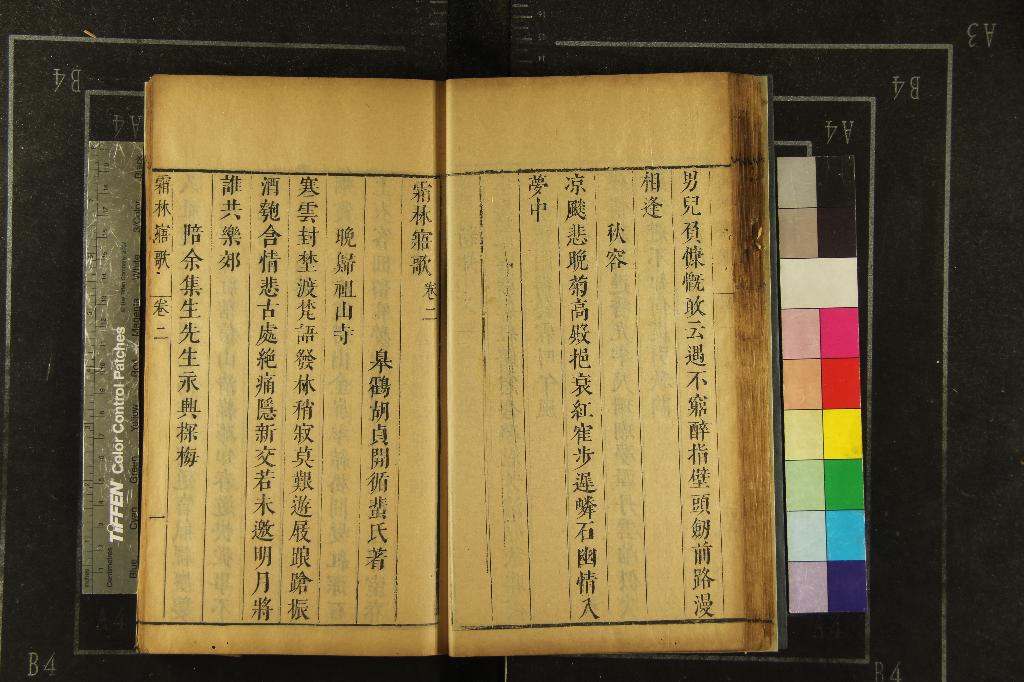 男兒負慷慨敢云遇不窮醉指壁頭劒前路漫
相逢
秋容
凉颼悲晩菊高殿挹衰紅窄步遲嶙石幽情入
夢中
霜林寤歌卷二
皐鸐胡貞開循蜚氏著
晩歸祖山寺
寒雲封埜渡梵語發林稍寂莫艱遊屐踉蹌振
酒匏含情悲古處絶痛隱新交若未邀明月將
誰共樂郊
陪余集生先生永興探梅
霜林寤歌
卷二
一
TIFFEN Color Control Patches
B4
A4
A3
B4
A4
B4
B4